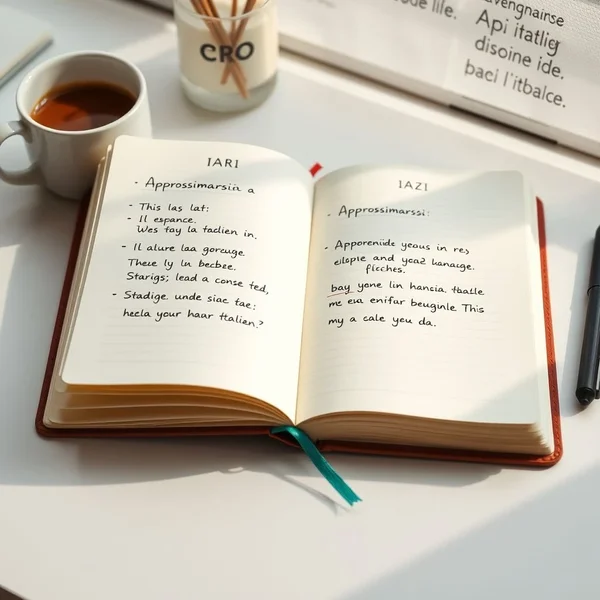 CRO
Api itatlig
disoine ide.
baci l'itbalce.
IARI
- Approssimarsiia a
- This las lat:
- Il espance.
Wes tay la tadien in.
- Il alure laa gorcuge.
Theee ly ln becbee.
Starigs; lead a conse ted,
- Stadige unde siac tae:
hecla your haar Italien?
IAZI
- Approssimarssi:
- Apporenide yeous in res,
eilopie and yeaz hanauge.
ficches.
bay yone lin hancia. tballe
me eua enifur beuginle This
my a cale yeu da.